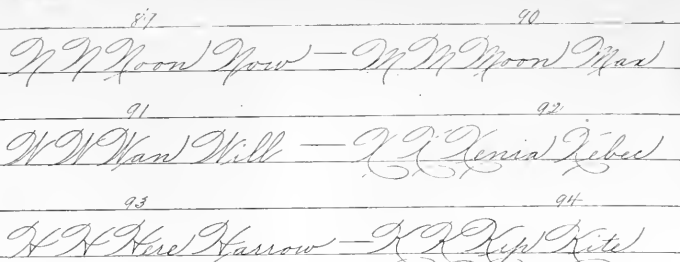 89 90
N N Noon Now — M M Moon Man
91 92
W W Wan Will — X X Xenia Xebec
93 94
H H Here Harrow — K K Kip Kite